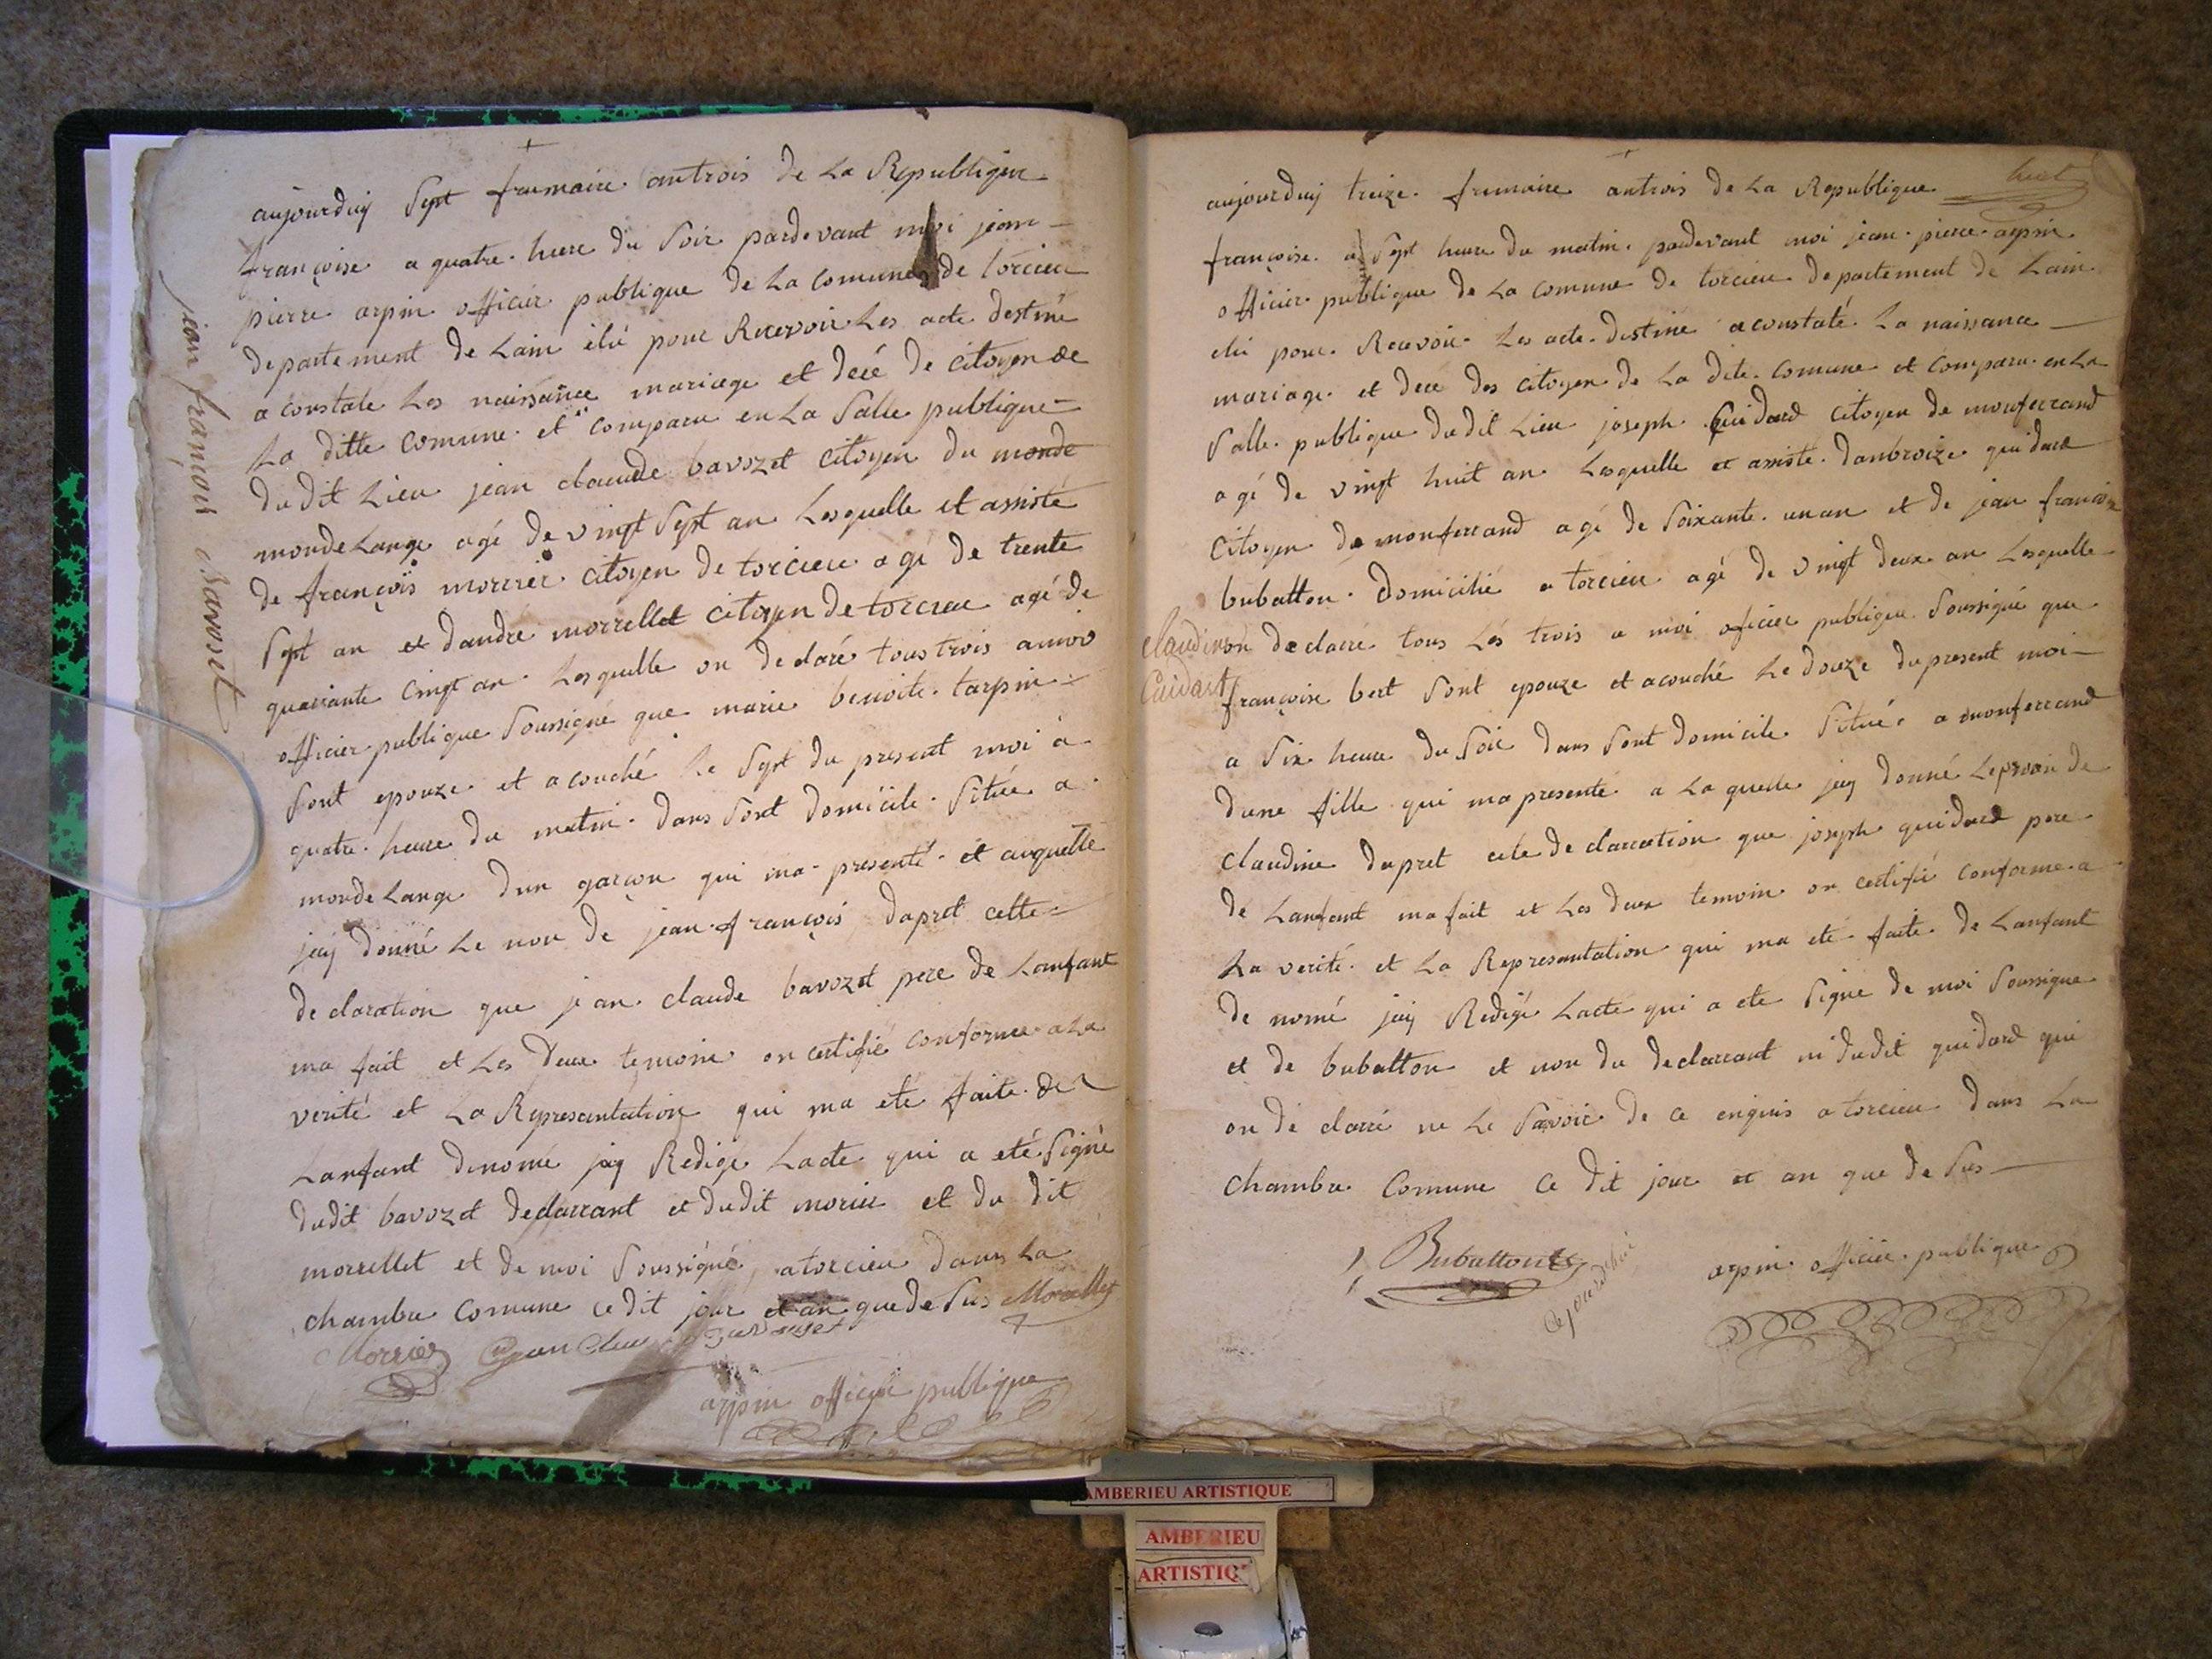 aujourduij Sept frumaire antrois de La Republique
françoise a quatre heure du Soir pardevant moi jean
pierre arpin officier publique de La Comune de torcieu
departement de Lain élu pour Recevoir Les acte destiné
a constate Les naissance mariage et décé de citoyen de
La ditte comune et comparu en La Salle publique
du dit Lieu jean claude bavozet citoyen du monde
monde Lange agé de vingt Sept an Lesquelle et assisté
de françois morrier citoyen de torcieu agé de trente
Sept an et dandre morrellet citoyen de torcieu agé de
quarante cinqt an Lesquelle on declaré tous trois a moi
officier publique Soussigné que marie benoite tarpin
Sont epouze et acouché Le Sept du present moi à
quatre heure du matin dans Sont domicile Situé a
monde Lange dun garcon qui ma presenté et auquelle
jaij donné Le non de jean françois dapret cette
declaration que jean claude bavozet pere de Lanfant
ma fait et Les deux temoins on certifié conforme a La
verité et La Representation qui ma eté faite de
Lanfant denomé jaij Redige Lacte qui a eté Signé
dudit bavozet declarrant et dudit morier et du dit
morrellet et de moi Soussigné a torcieu dans La
chambre Comune ce dit jour et an que de Sus Morellet
Morrier jean
arpin officier publique
jean françois Bavoset
aujourduij treize frimaire antrois de La Republique
françoise a Sept heure du matin pardevant moi jean pierre arpin
officier publique de La comune de torcieu departement de Lain
elu pour Recevoir Les acte destiné a constaté La naissance
mariage et decé des citoyen de La dite Comune et comparu en La
Salle publique dudit Lieu joseph Guidard citoyen de monferrand
agé de vingt huit an Lesquelle et assisté danbroize guidard
Citoyen de monferrand agé de Soixante un an et de jean francois
bubatton domicilié a torcieu agé de vingt deux an Lesquelle
on declarré tous Les trois a moi officier publique Soussigné que
françoise bert Sont epouze et acouché Le douze du present moi
a Six heure du Soir dans Sont domicile Situé a monferrand
dune fille qui ma presenté a La quelle jaij donné Le prenon de
claudine dapret cete declarration que joseph guidard pere
de Lanfant ma fait et Les deux temoin on certifié conforme a
La verité et La Representation qui ma eté faite de Lanfant
de nomé jaij Redigé Lacte qui a eté Signe de moi Soussigne
et de bubatton et non du declarrant ni dudit guidard qui
on dé clarré ne Le Savoir de ce enquis a torcieu dans La
chambre Comune ce dit jour et an que de Sus
claudine
Guidart
Bubatton
arpin officier publique
AMBERIEU ARTISTIQUE
AMBERIEU
ARTISTIQ